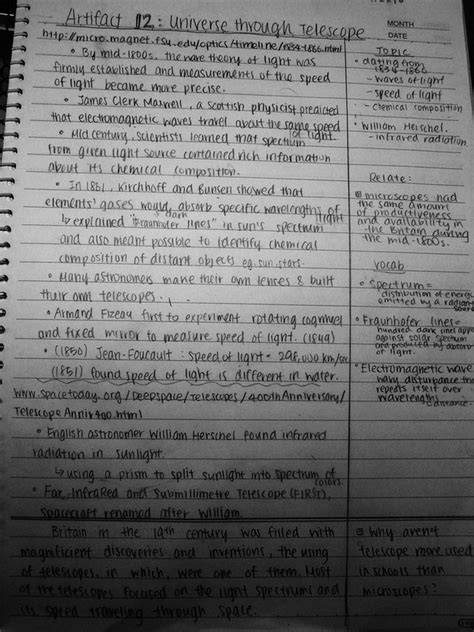 Artifact 12: Universe through Telescope
MONTH
DATE
http://micro.magnet.fsu.edu/optics/timeline/1834-1866.html
• By mid-1800s, the wave theory of light was
firmly established and measurements of the speed
of light became more precise.
• James Clerk Maxwell, a Scottish physicist predicted
that electromagnetic waves travel about the same speed
of light.
• Mid century, scientists learned that spectrum
from given light source contained rich information
about its chemical composition.
• In 1861, Kirchhoff and Bunsen showed that
elements' gases would absorb specific wavelengths of light
↳ explained "Fraunhofer dark lines" in sun's spectrum
and also meant possible to identify chemical
composition of distant objects eg. sun, stars.
• Many astronomers make their own lenses & built
their own telescopes.
• Armand Fizeau first to experiment rotating
and fixed mirror to measure speed of light. (1849)
• (1850) Jean-Foucault: speed of light = 298,000 km/sec
(1851) found speed of light is different in water.
www.spacetoday.org/DeepSpace/Telescopes/400thAnniversary/
TelescopeAnniv400.html
• English astronomer William Herschel found infrared
radiation in sunlight.
↳ using a prism to split sunlight into spectrum of
colors.
• Far InfraRed and Submillimetre Telescope (FIRST),
spacecraft renamed after William.
Britain in the 19th century was filled with
magnificient discoveries and inventions, the using
of telescopes, in which, were one of them. Most
of the telescopes focused on the light spectrums and
its speed traveling through space.
Topic
• dating from
1834-1866
- waves of light
- speed of light
- chemical composition
• William Herschel
- infrared radiation
Relate:
microscopes had
the same amount
of productiveness
and availability
in Britain during
the mid-1800s.
vocab
• Spectrum =
distribution of energy
emitted by a radiant
source
• Fraunhofer lines =
hundred dark lines
against solar spectrum
and produced by
of light.
• Electromagnetic wave
wavy disturbance that
repeats itself over
wavelengths
distance.
Why aren't
telescope more used
in schools than
microscopes?